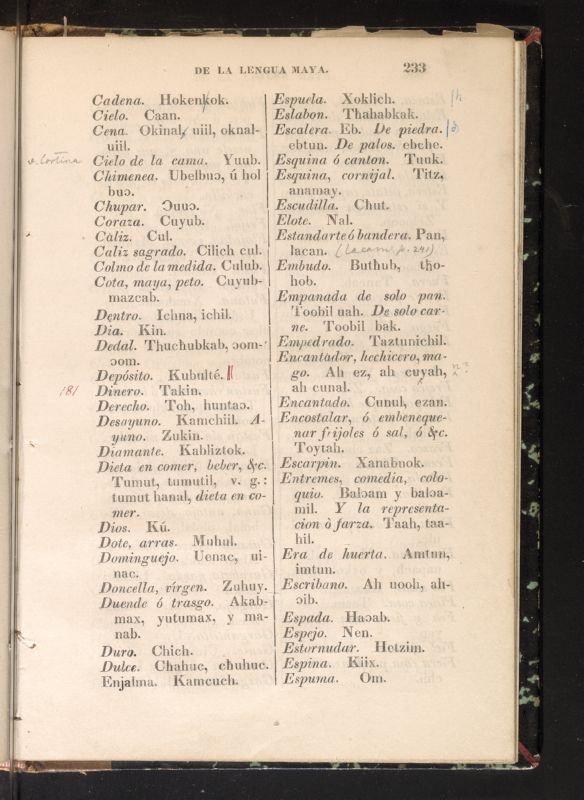 DE LA LENGUA MAYA. 233
Cadena. Hokenkok.
Cielo. Caan.
Cena. Okinal, uiil, oknal-
uiil.
v. Cortina
Cielo de la cama. Yuub.
Chimenea. Ubelbuɔ, ú hol
buɔ.
Chupar. Ɔuuɔ.
Coraza. Cuyub.
Càliz. Cul.
Caliz sagrado. Cilich cul.
Colmo de la medida. Culub.
Cota, maya, peto. Cuyub-
mazcab.
Dentro. Ichna, ichil.
Dia. Kin.
Dedal. Thuchubkab, ɔom-
ɔom.
Depósito. Kubulté.
181
Dinero. Takin.
Derecho. Toh, huntaɔ.
Desayuno. Kamchiil. A-
yuno. Zukin.
Diamante. Kabliztok.
Dieta en comer, beber, &c.
Tumut, tumutil, v. g.:
tumut hanal, dieta en co-
mer.
Dios. Kú.
Dote, arras. Muhul.
Dominguejo. Uenac, ui-
nac.
Doncella, vírgen. Zuhuy.
Duende ó trasgo. Akab-
max, yutumax, y ma-
nab.
Duro. Chich.
Dulce. Chahuc, chuhuc.
Enjalma. Kamcuch.
Espuela. Xoklich. /h
Eslabon. Thahabkak.
Escalera. Eb. De piedra.
ebtun. De palos. ebche.
Esquina ó canton. Tuuk.
Esquina, cornijal. Titz,
anamay.
Escudilla. Chut.
Elote. Nal.
Estandarte ó bandera. Pan,
lacan. (Lacam p. 241)
Embudo. Buthub, tho-
hob.
Empanada de solo pan.
Toobil uah. De solo car-
ne. Toobil bak.
Empedrado. Taztunichil.
Encantador, hechicero, ma-
go. Ah ez, ah cuyah,
ah cunal.
Encantado. Cunul, ezan.
Encostalar, ó embeneque-
nar frijoles ó sal, ó &c.
Toytah.
Escarpin. Xanabnok.
Entremes, comedia, colo-
quio. Balɔam y balɔa-
mil. Y la representa-
cion ò farza. Taah, taa-
hil.
Era de huerta. Amtun,
imtun.
Escribano. Ah uooh, ah-
ɔib.
Espada. Haɔab.
Espejo. Nen.
Estornudar. Hetzim.
Espina. Kiix.
Espuma. Om.